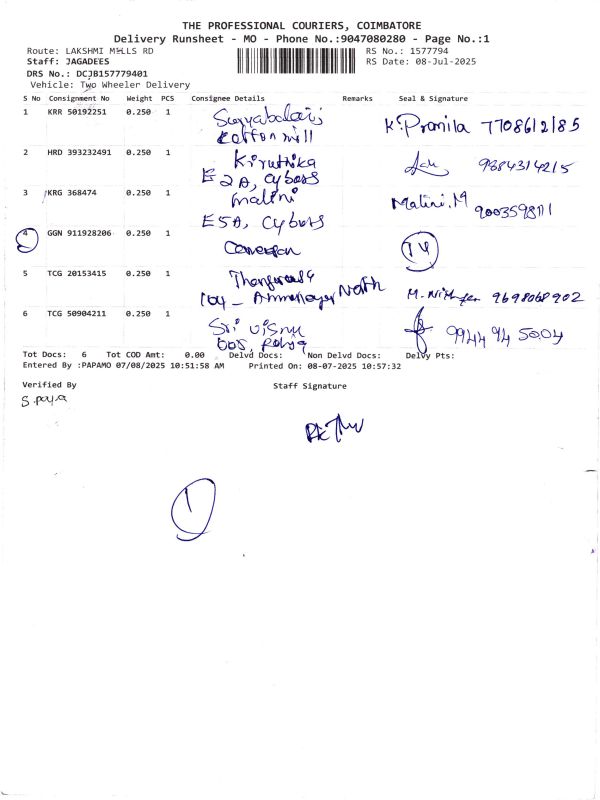 THE PROFESSIONAL COURIERS, COIMBATORE
Delivery Runsheet - MO - Phone No.:9047080280 - Page No.:1
Route: LAKSHMI MILLS RD RS No.: 1577794
Staff: JAGADEES RS Date: 08-Jul-2025
DRS No.: DCJB157779401
Vehicle: Two Wheeler Delivery
S No Consignment No Weight PCS Consignee Details Remarks Seal & Signature
1 KRR 50192251 0.250 1 Suryabalaji K. Pramila 7708612185
Cotton mill
2 HRD 393232491 0.250 1 Kiruthika 9884314215
E2A, Cybers
3 KRG 368474 0.250 1 Malini Malini.M 9003598111
E5A, Cybers
4 GGN 911928206 0.250 1
5 TCG 20153415 0.250 1
104 - North 9698068902
6 TCG 50904211 0.250 1 Sri Visnu 9944945004
Tot Docs: 6 Tot COD Amt: 0.00 Delvd Docs: Non Delvd Docs: Delvy Pts:
Entered By :PAPAMO 07/08/2025 10:51:58 AM Printed On: 08-07-2025 10:57:32
Verified By Staff Signature
1